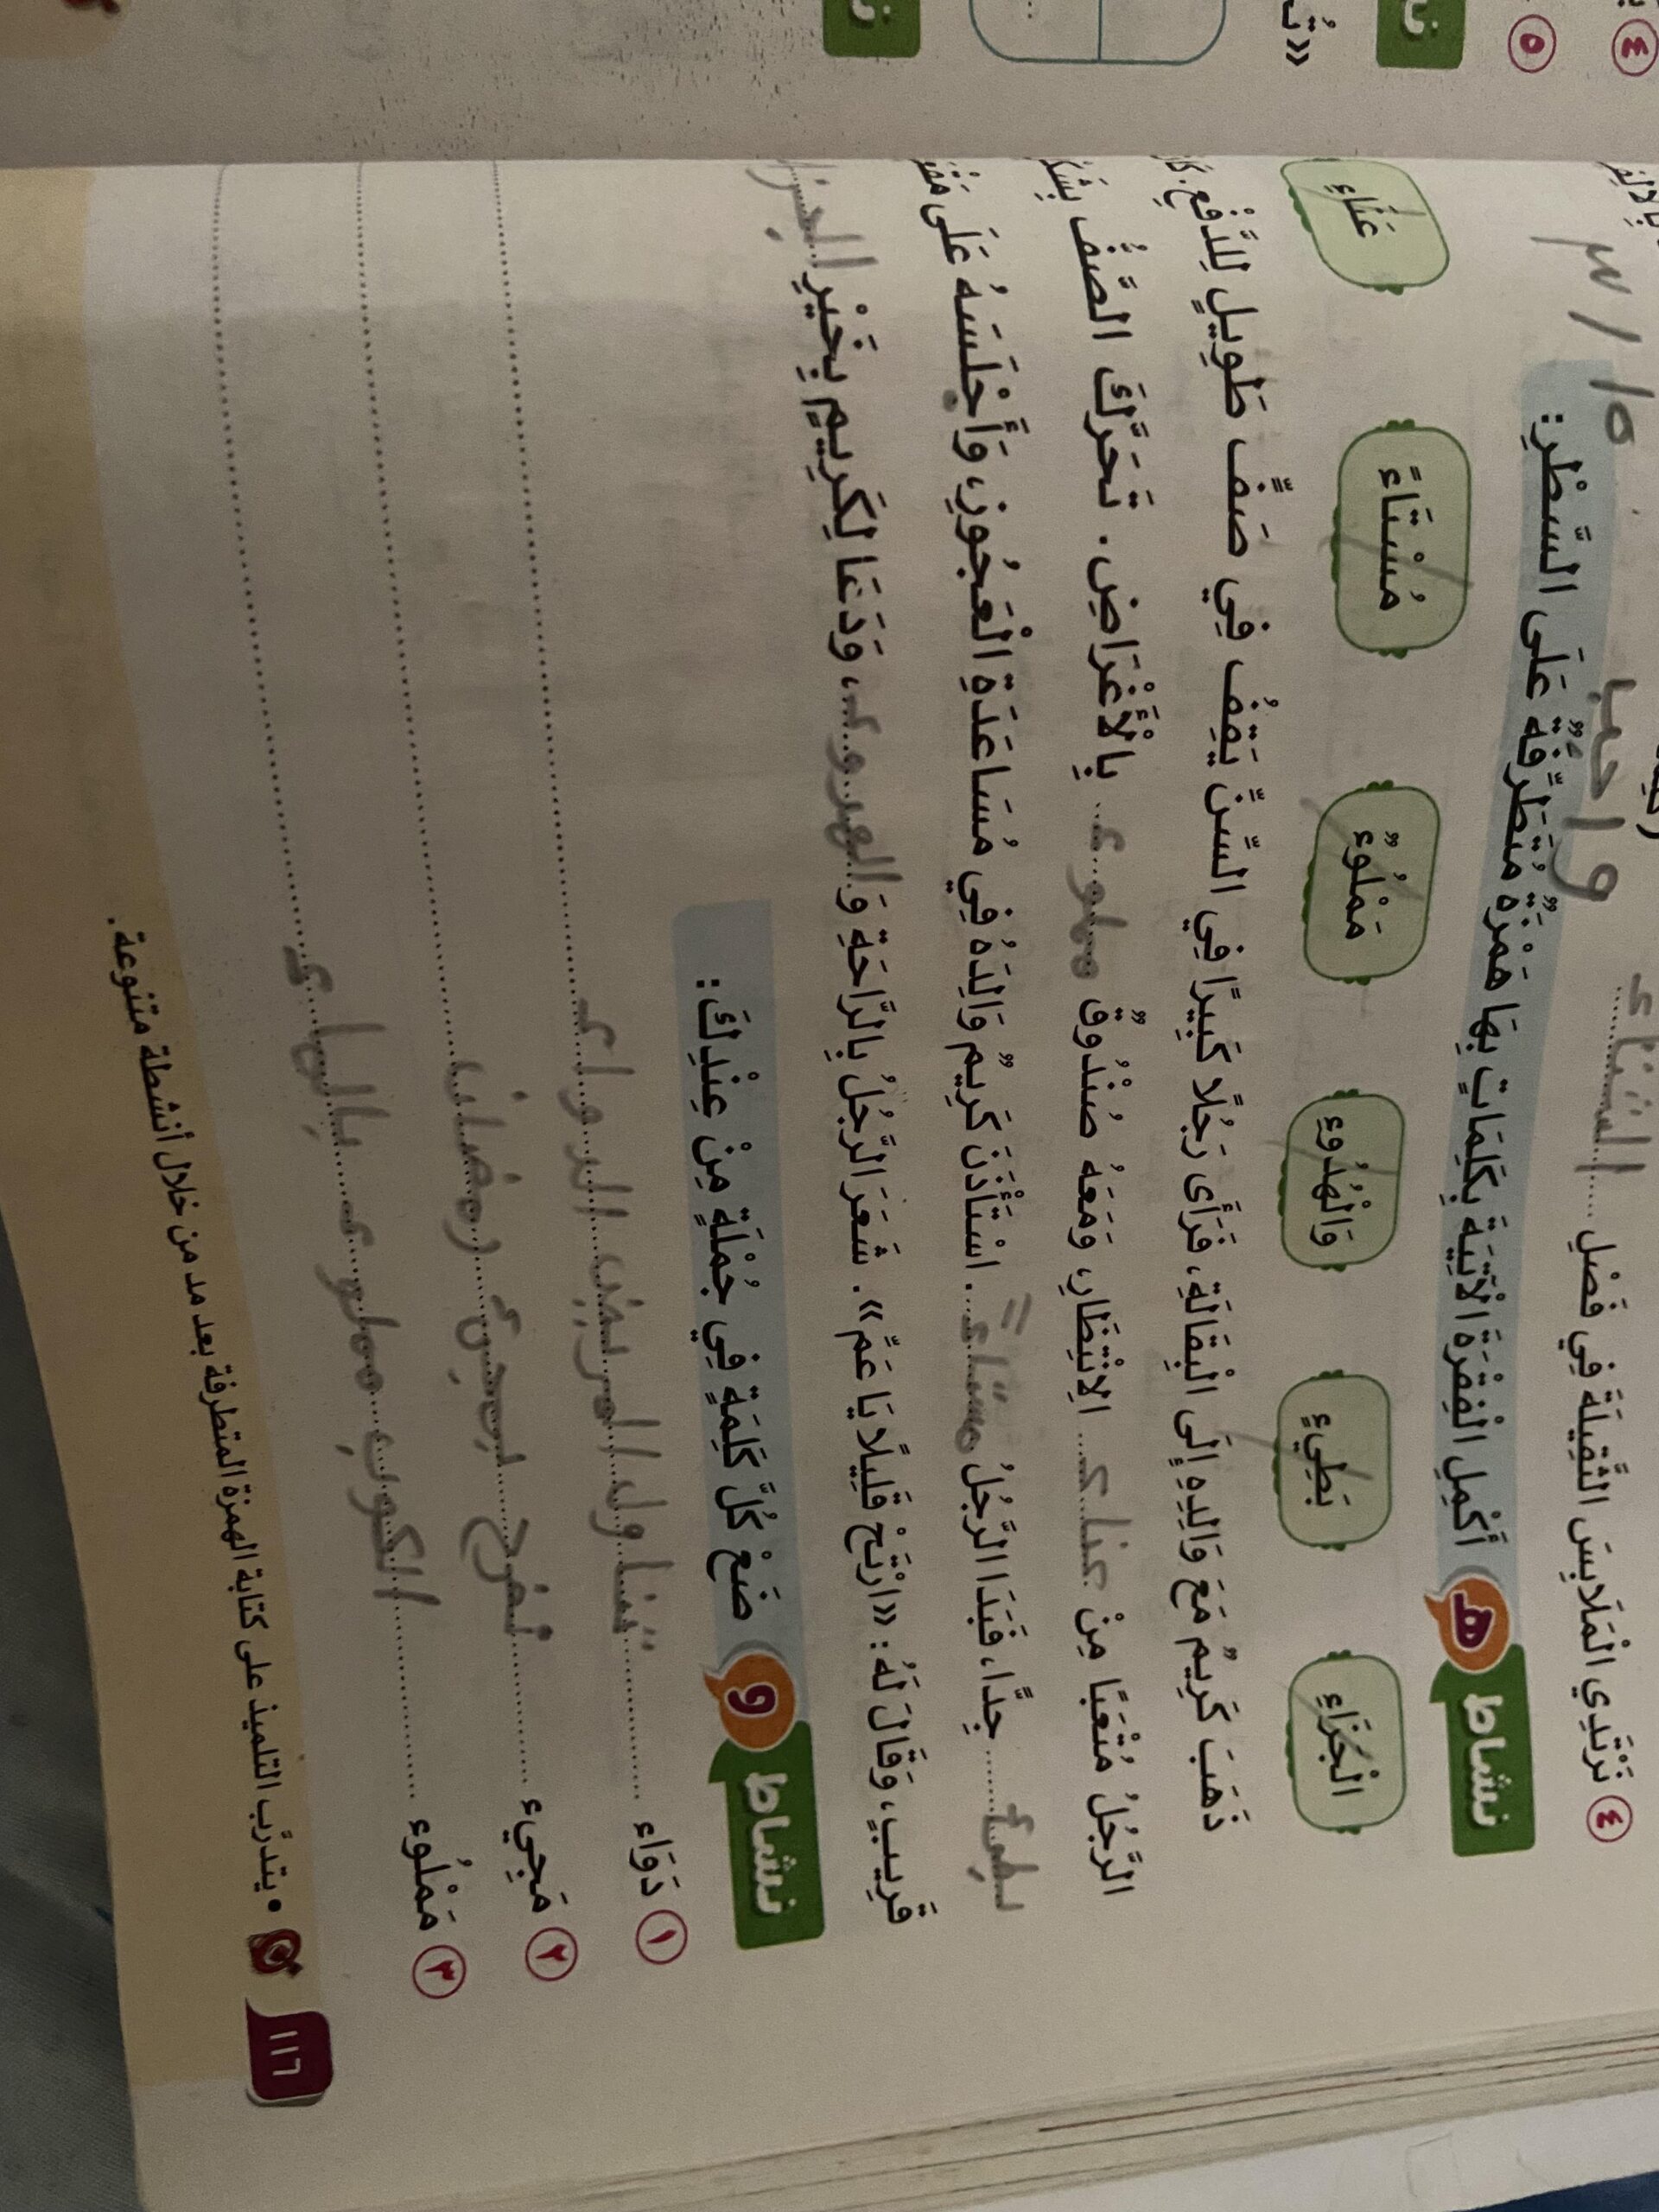 ٤ نَرْتَدِي الْمَلَابِسَ الثَّقِيلَةَ فِي فَصْلِ الشتاء
واجب ٣/١٥
نشاط هـ أَكْمِلِ الْفِقْرَةَ الْآتِيَةَ بِكَلِمَاتٍ بِهَا هَمْزَةٌ مُتَطَرِّفَةٌ عَلَى السَّطْرِ:
الْجَزَاءِ بَطِيءٍ وَالْهُدُوءِ مَمْلُوءٌ مُسْتَاءً عَنَاءِ
ذَهَبَ كَرِيمٌ مَعَ وَالِدِهِ إِلَى الْبِقَالَةِ، فَرَأَى رَجُلًا كَبِيرًا فِي السِّنِّ يَقِفُ فِي صَفٍّ طَوِيلٍ لِلدَّفْعِ.
الرَّجُلُ مُتْعَبًا مِنْ عناء الِانْتِظَارِ، وَمَعَهُ صُنْدُوقٌ مملوء بِالْأَغْرَاضِ. تَحَرَّكَ الصَّفُّ
بطيء جِدًّا، فَبَدَا الرَّجُلُ مستاءً. اسْتَأْذَنَ كَرِيمٌ وَالِدَهُ فِي مُسَاعَدَةِ الْعَجُوزِ، وَأَجْلَسَهُ عَلَى
قَرِيبٍ، وَقَالَ لَهُ: «ارْتَحْ قَلِيلًا يَا عَمِّ». شَعَرَ الرَّجُلُ بِالرَّاحَةِ وَالهدوء، وَدَعَا لِكَرِيمٍ بِخَيْرِ الجزاء
نشاط و ضَعْ كُلَّ كَلِمَةٍ فِي جُمْلَةٍ مِنْ عِنْدِكَ:
١ دَوَاء تناول المريض الدواء
٢ مَجِيء نفرح بمجئ رمضان
٣ مَمْلُوء الكوب مملوء بالماء
• يتدرَّب التلميذ على كتابة الهمزة المتطرفة بعد مد من خلال أنشطة متنوعة.
١١٦